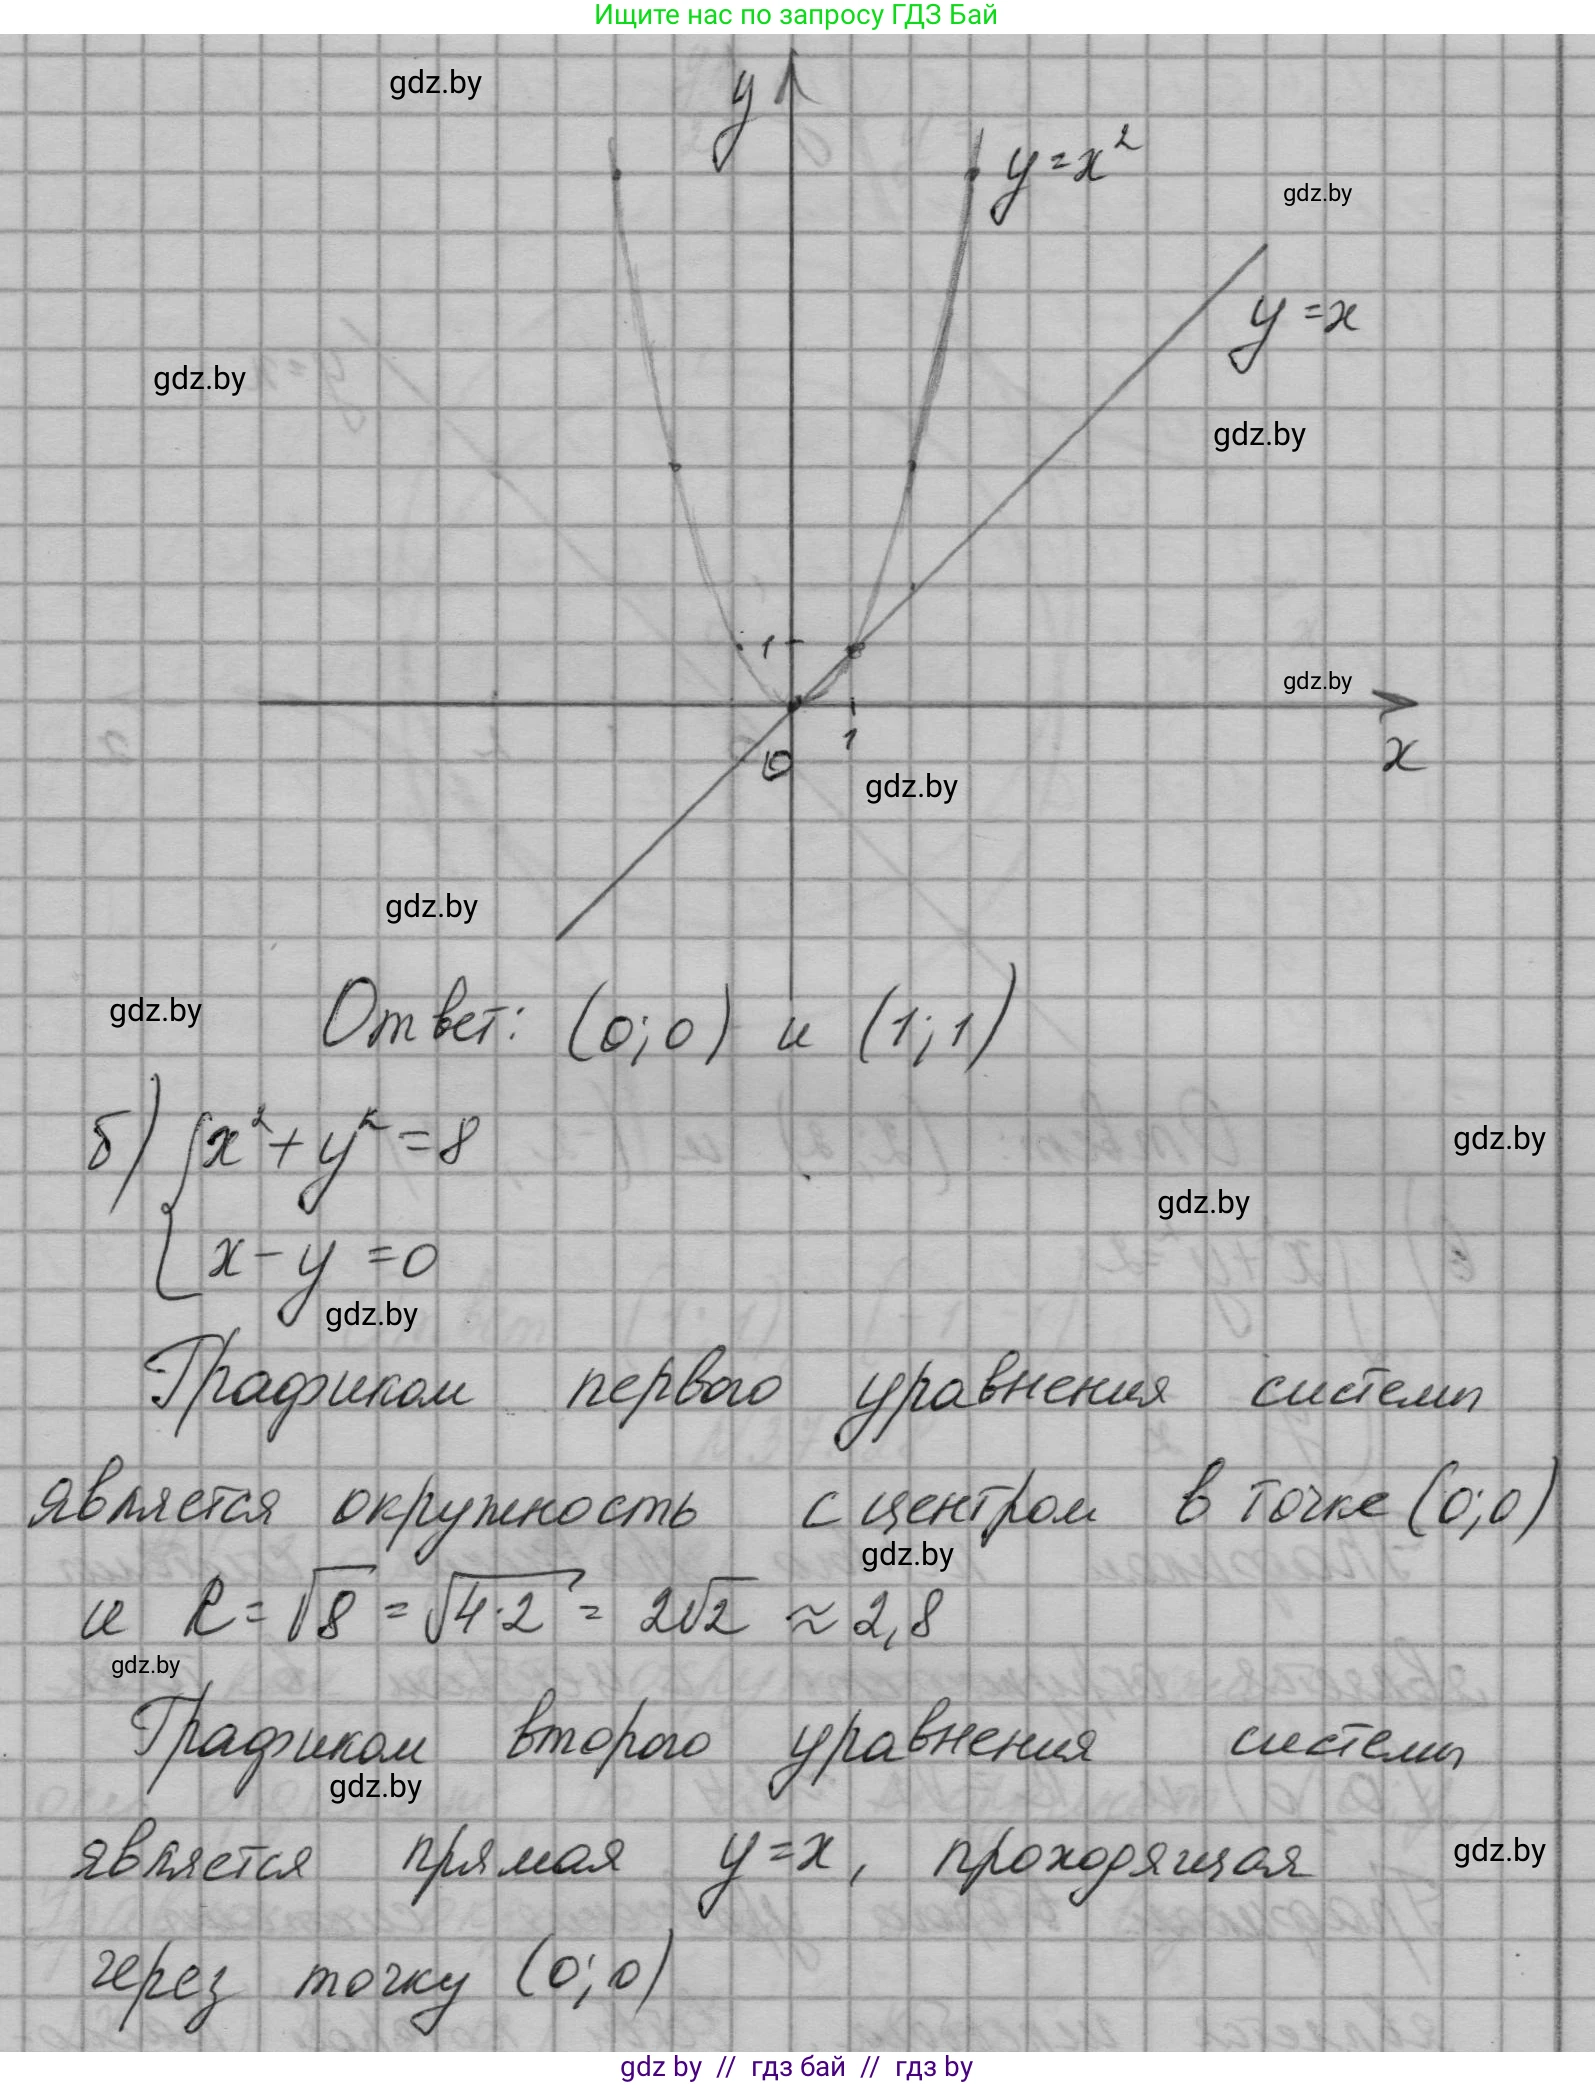 Ищите нас по запросу ГДЗ Бай
gdz.by
y
y=x²
gdz.by
y=x
gdz.by
gdz.by
1
gdz.by
0
1
x
gdz.by
gdz.by
gdz.by
Ответ: (0;0) и (1;1)
б) { x²+y²=8
gdz.by
gdz.by
x-y=0
gdz.by
Графиком первого уравнения системы
является окружность с центром в точке (0;0)
gdz.by
и R=√8=√4·2=2√2≈2,8
gdz.by
Графиком второго уравнения системы
gdz.by
является прямая y=x, проходящая
gdz.by
через точку (0;0)
gdz by // гдз бай // гдз by